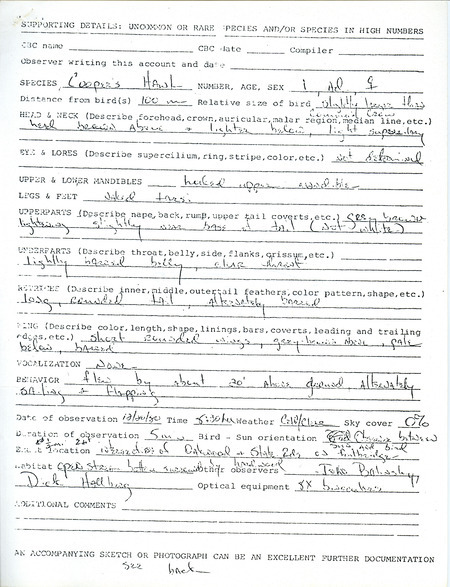 SUPPORTING DETAILS: UNCOMMON OR RARE SPECIES AND/OR SPECIES IN HIGH NUMBERS
CBC name CBC date Compiler
Observer writing this account and date
SPECIES Cooper's Hawk NUMBER, AGE, SEX 1 Ad ♀
Distance from bird(s) 100 Relative size of bird slightly larger than
common crow
HEAD & NECK (Describe forehead,crown,auricular,malar region,median line,etc.)
head brown above + lighter below, light
EYE & LORES (Describe supercilium,ring,stripe,color,etc.) not determined
UPPER & LOWER MANDIBLES hooked upper mandible
LEGS & FEET naked tarsi
UPPERPARTS (Describe nape,back,rump,upper tail coverts,etc.) grey brown
lightening slightly near base of tail (not white)
UNDERPARTS (Describe throat,belly,side,flanks,crissum,etc.)
lightly barred belly, clear throat
RECTRICES (Describe inner,middle,outertail feathers,color pattern,shape,etc.)
long, rounded tail, alternately barred
WING (Describe color,length,shape,linings,bars,coverts,leading and trailing
edges,etc.) short rounded wings, grey-brown above, pale
below, barred
VOCALIZATION None
BEHAVIOR flew by about 20' above ground, Alternately
gliding + flapping
Date of observation 12/20/80 Time Weather Cold/Clear Sky cover 0%
Duration of observation 5 min Bird - Sun orientation between
sun and bird
Exact location intersection of Oakwood + State Rds
Habitat open stream bottom surrounded by hardwood Other observers John
Dick Optical equipment 8X binoculars
ADDITIONAL COMMENTS
AN ACCOMPANYING SKETCH OR PHOTOGRAPH CAN BE AN EXCELLENT FURTHER DOCUMENTATION
See back